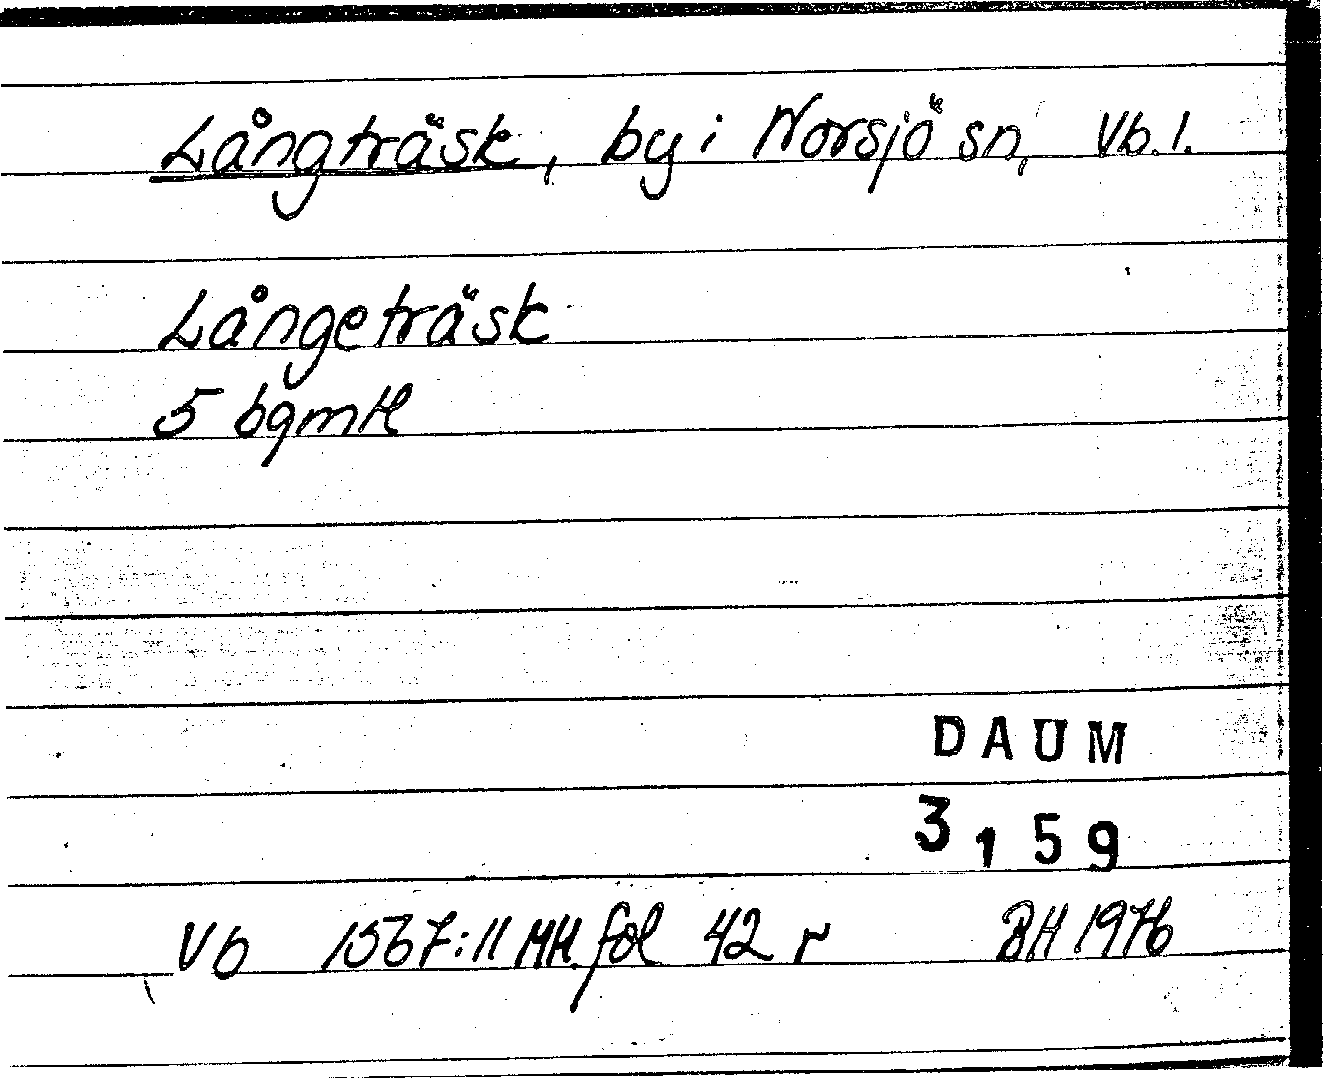 Långträsk, by i Norsjö sn, Vb. l.
Långeträsk
5 bgmtl
DAUM
3159
Vb 1567:11 MH. fol 42 r BH 1976